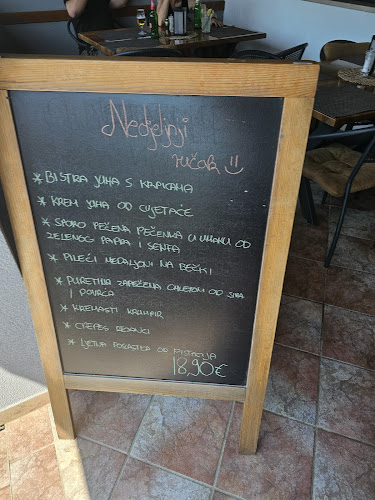 Nedjeljni
ručak :)
* BISTRA JUHA S KRPICAMA
* KREM JUHA OD CVJETAČE
* SPORO PEČENA PEČENKA U UMAKU OD
ZELENOG PAPRA I SENFA
* PILEĆI MEDALJONI NA BEČKI
* PURETINA ZAPEČENA OMLETOM OD SIRA
I POVRĆA
* KREMASTI KRUMPIR
* CTEPES REZANCI
* LJETNA POSLASTICA OD PISTACIJA
18,90€